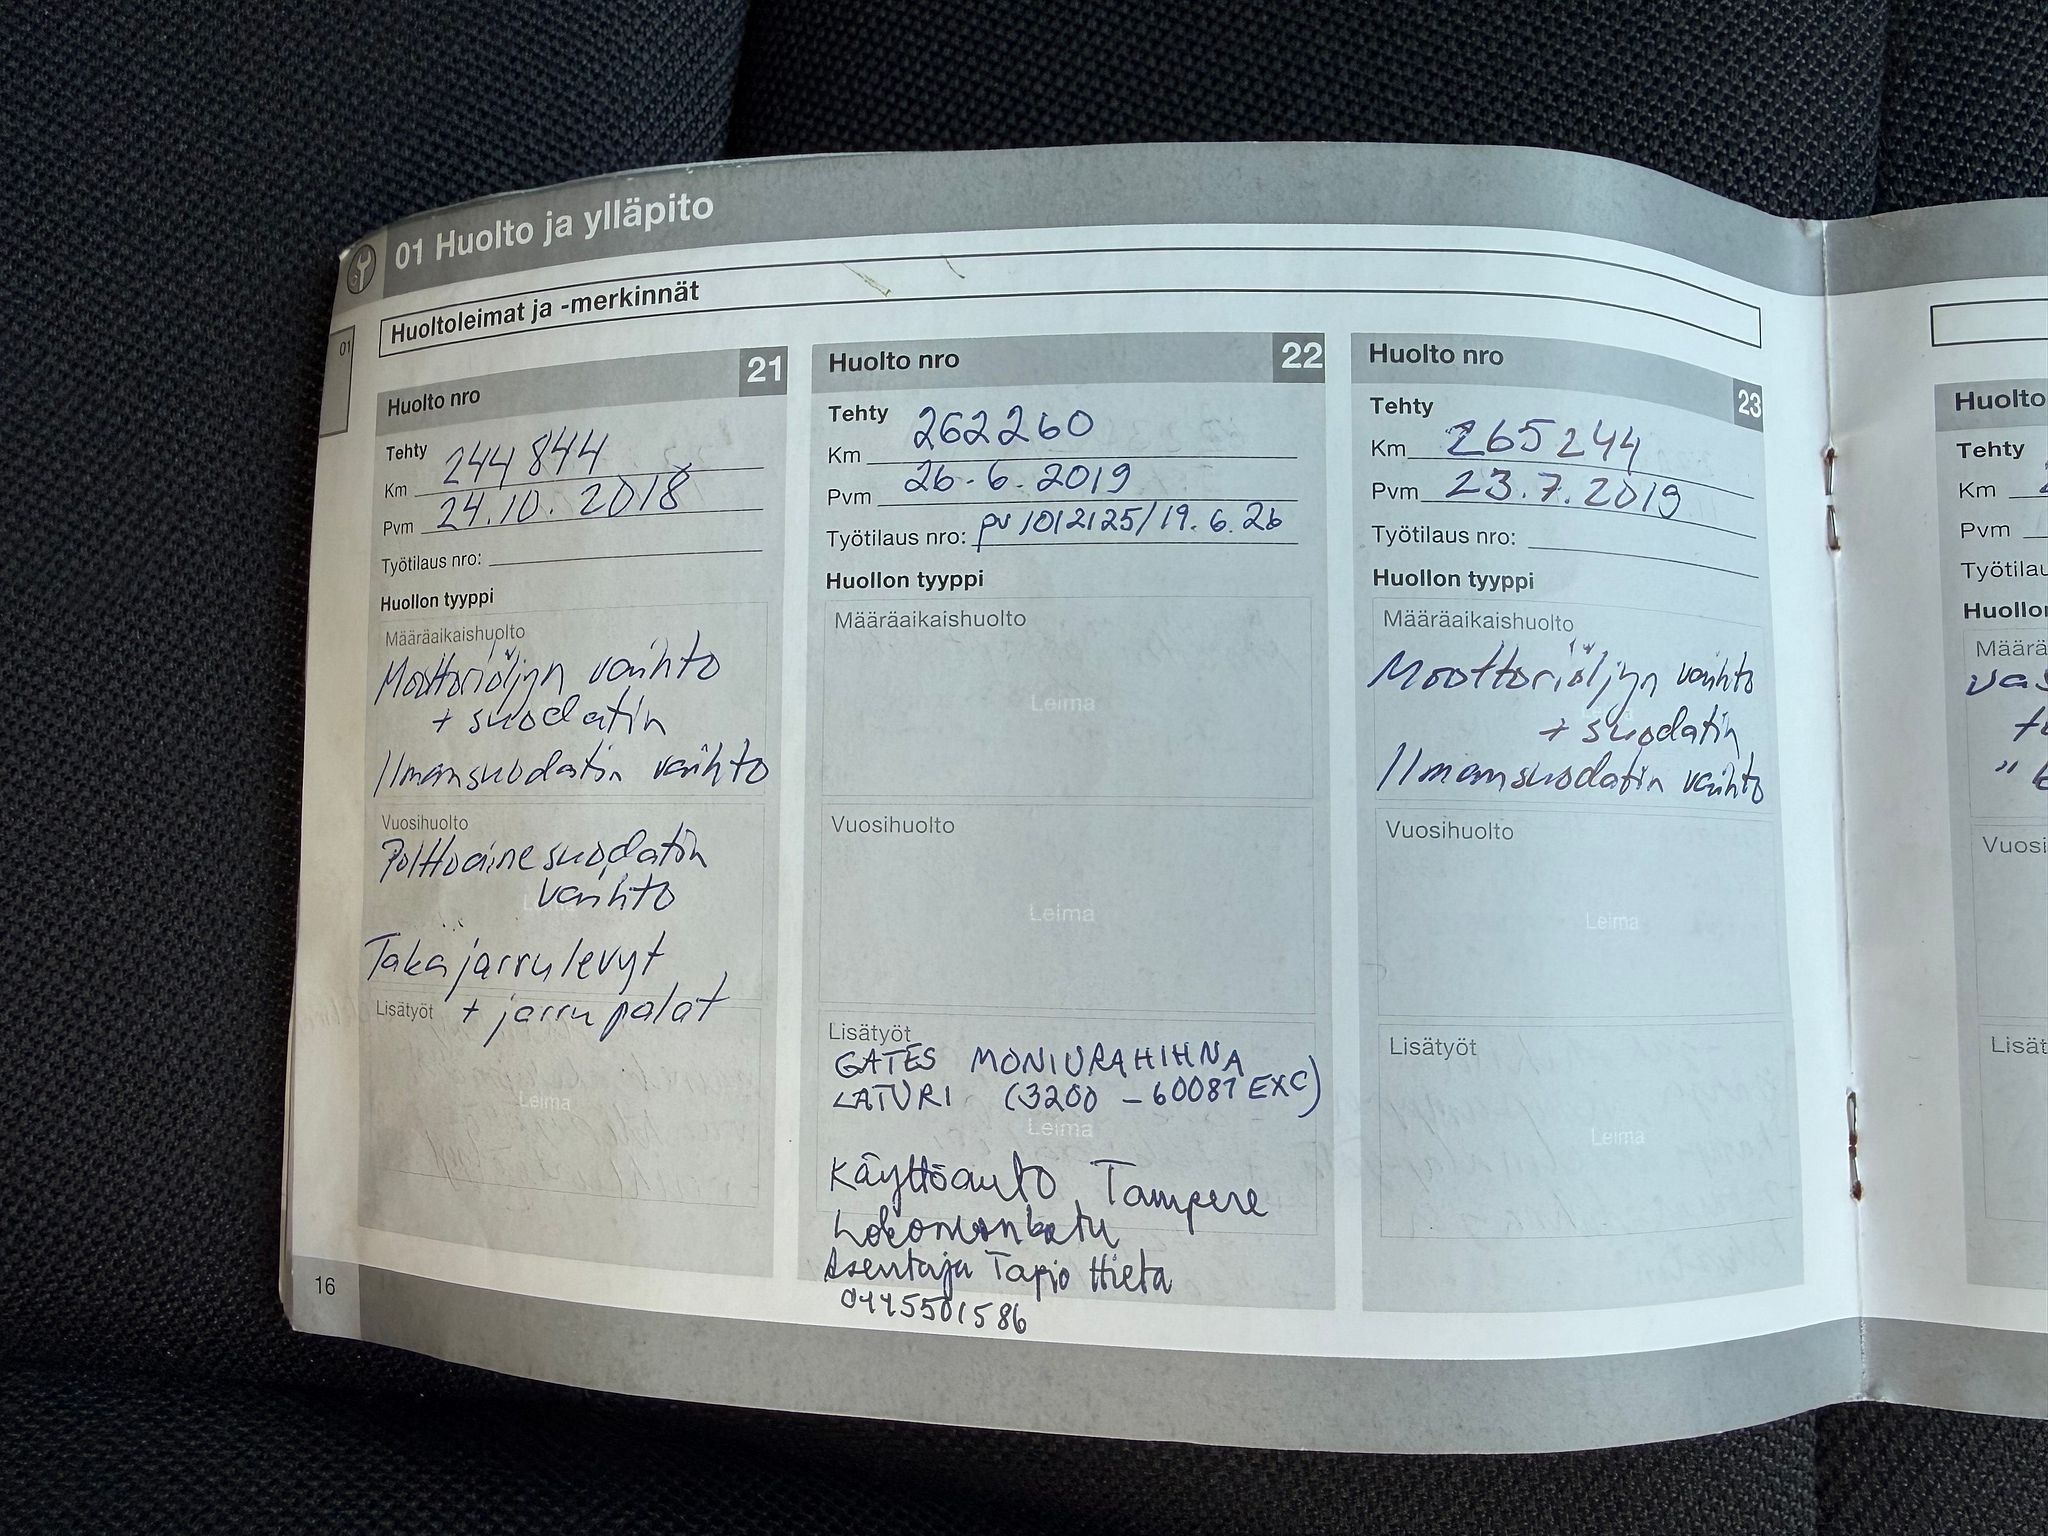 01 Huolto ja ylläpito
01
Huoltoleimat ja -merkinnät
Huolto nro 21
Tehty
Km 244 844
Pvm 24.10.2018
Työtilaus nro:
Huollon tyyppi
Määräaikaishuolto
Moottoriöljyn vaihto
+ suodatin
Ilmansuodatin vaihto
Vuosihuolto
Polttoainesuodatin
vaihto
Leima
Takajarrulevyt
Lisätyöt + jarrupalat
Leima
Huolto nro 22
Tehty
Km 262260
Pvm 26.6.2019
Työtilaus nro: pv 1012125/19.6.26
Huollon tyyppi
Määräaikaishuolto
Leima
Vuosihuolto
Leima
Lisätyöt
GATES MONIURAHIHNA
LATURI (3200 - 60081 EXC)
Leima
Käyttöauto Tampere
Lokomonkatu
Asentaja Tapio Hieta
0445501586
Huolto nro 23
Tehty
Km 265244
Pvm 23.7.2019
Työtilaus nro:
Huollon tyyppi
Määräaikaishuolto
Moottoriöljyn vaihto
+ suodatin
Ilmansuodatin vaihto
Vuosihuolto
Leima
Lisätyöt
Leima
16
Huolto
Tehty
Km
Pvm
Työtilau
Huollon
Määrä
vas
Vuosi
Lisät